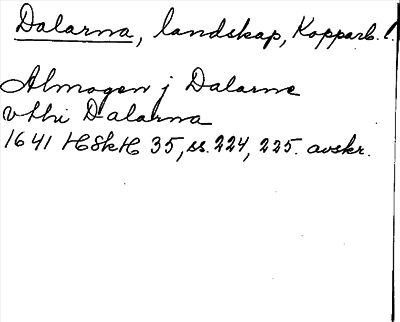 Dalarna, landskap, Kopparb. l.
Almogen j Dalarne
vthi Dalarna
1641 HSkH 35, ss. 224, 225. avskr.